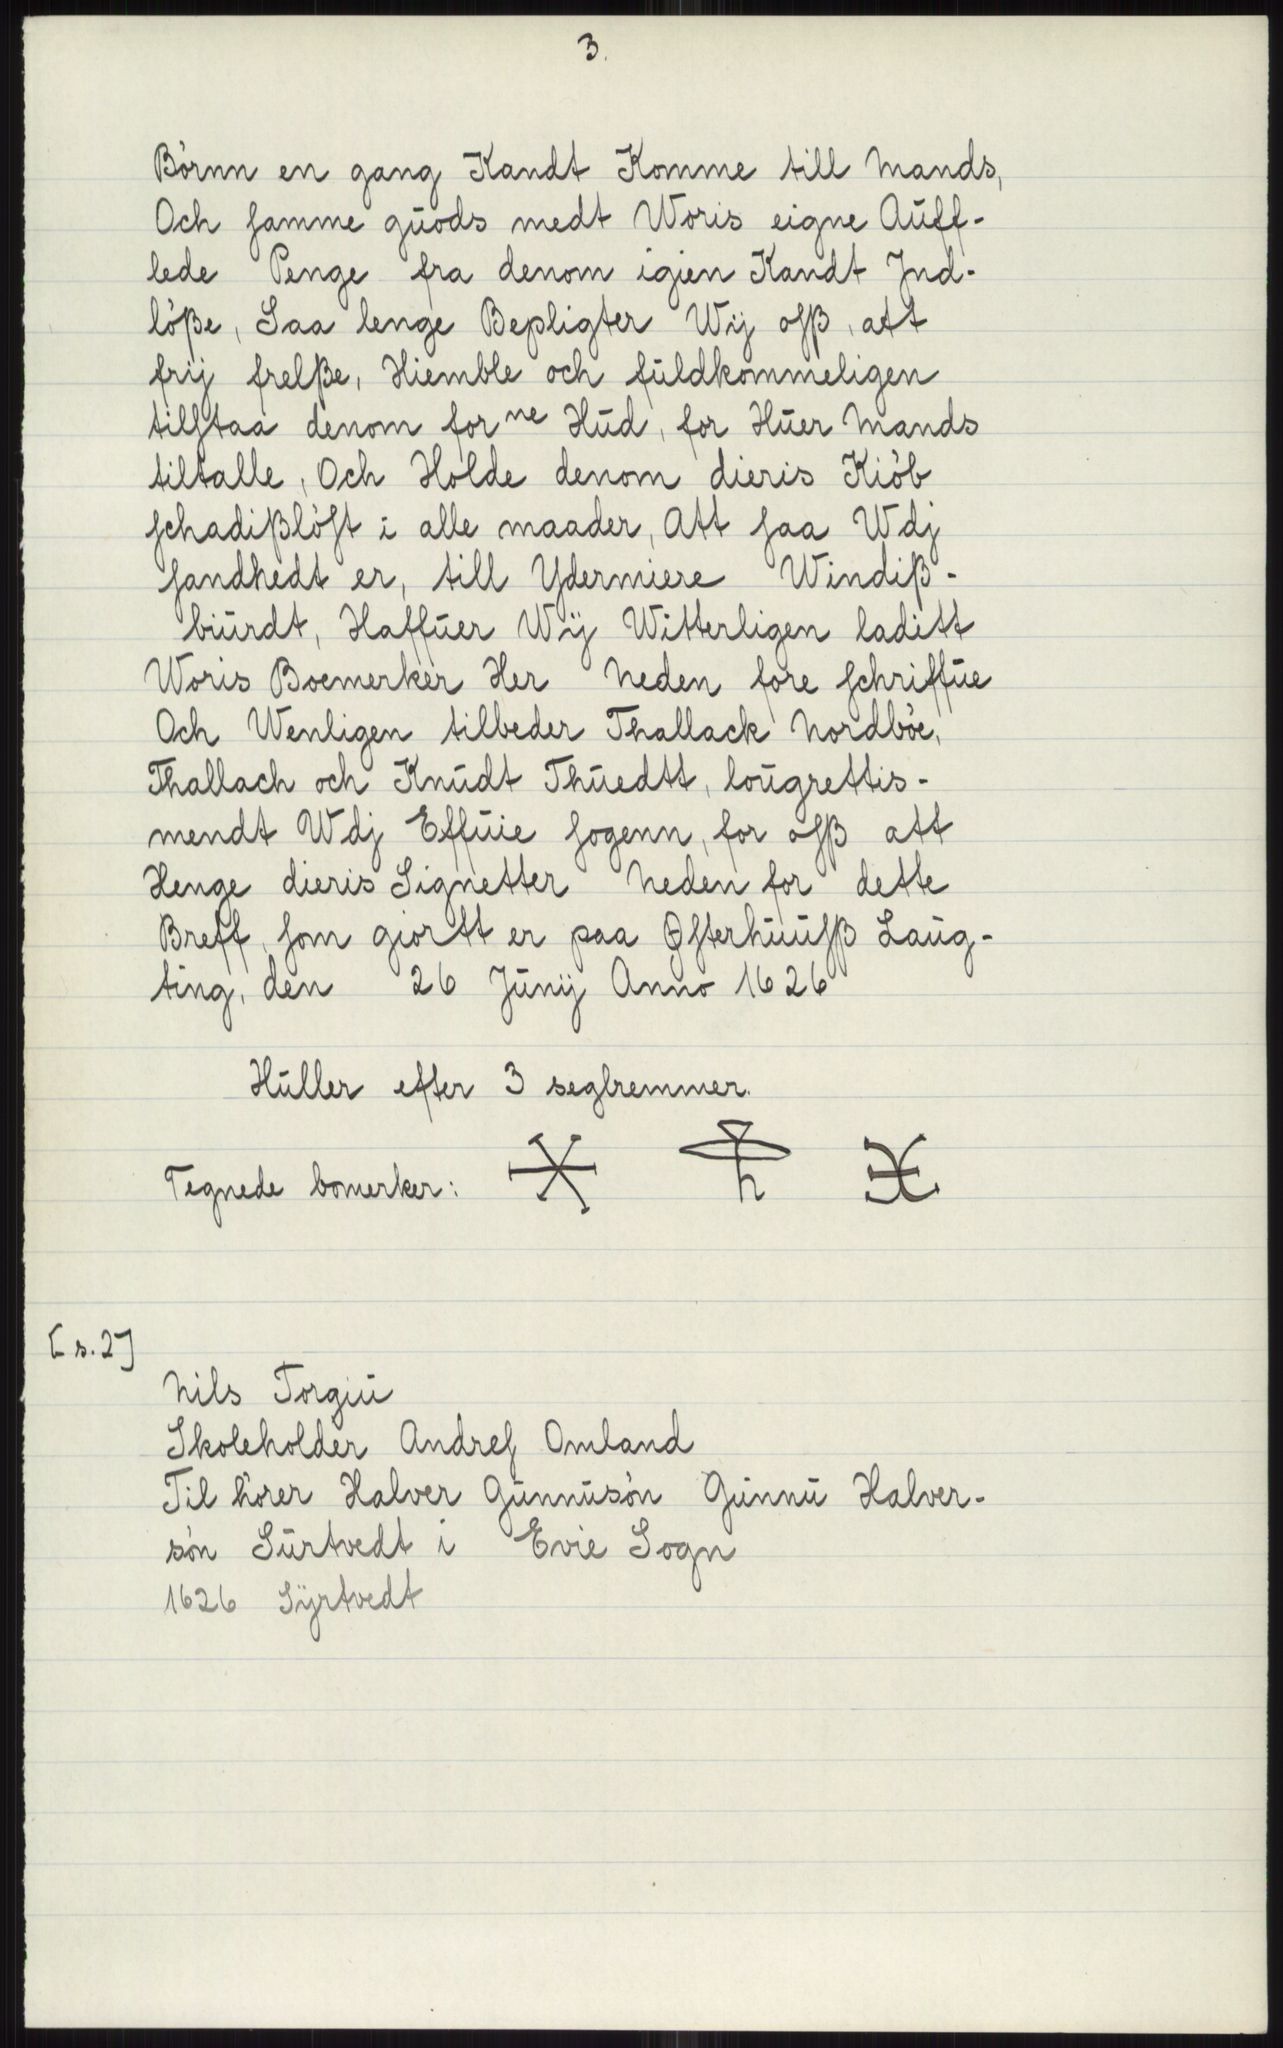 3.
Börnn en gang Kandt Komme till Mands,
Och ſamme guods medt Woris eigne Auff-
lede Penge fra denom igien Kandt Jnd-
löße, Saa lenge Bepligter Wij oſß, att
frij frelße, Hiemble och fuldkommeligen
tilſtaa denom forne Hud, for Huer Mands
tiltalle, Och Holde denom dieris Kiöb
ſchadißlöſt i alle maader, Att ſaa Wdj
ſandhedt er, till Ydermiere Windiß-
biurdt, Haffuer Wij Witterligen laditt
Woris Boemerker Her Neden fore ſchriffue
Och Wenligen tilbeder Thallack Nordböe,
Thallach och Knudt Thuedtt, lougrettis-
mendt Wdj Effuie ſogenn, for oſß att
Henge dieris Signetter Neden for dette
Breff, ſom giortt er paa Øſterhuuſß Laug-
ting, den 26 Junij Anno 1626
Huller efter 3 seglremmer.
Tegnede bomerker:
[s. 2]
Nils Torgiu
Skoleholder Andreſ Omland
Til hörer Halver Gunnusön Gunnu Halver-
sön Surtvedt i Evie Sogn
1626 Sÿrtvedt